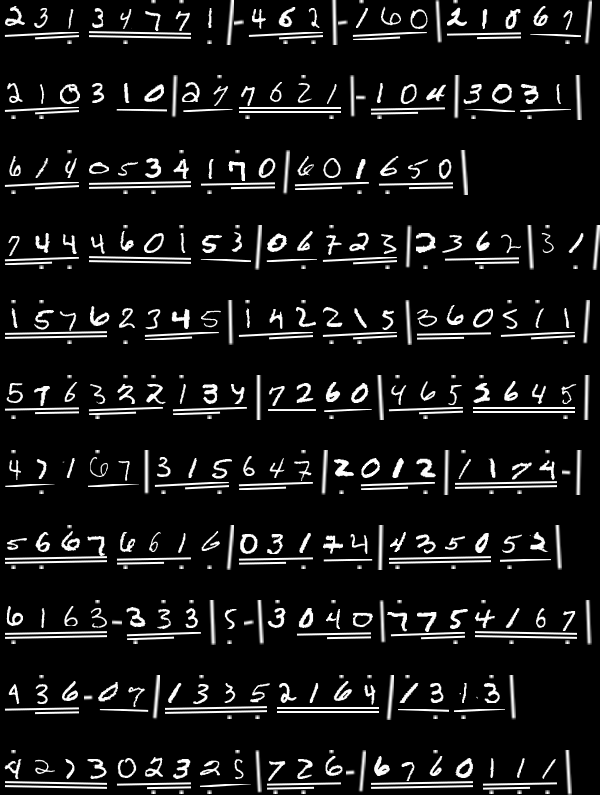 2 3 1 3 4 7 7 1 | - 4 6 2 | - 1 6 0 | 2 1 0 6 7 |
2 1 0 3 1 0 | 2 7 7 6 2 1 | - 1 0 4 | 3 0 3 1 |
6 1 4 0 5 3 4 1 7 0 | 6 0 1 6 5 0 |
7 4 4 4 6 0 1 5 3 | 0 6 7 2 3 | 2 3 6 2 | 3 1 |
1 5 7 6 2 3 4 5 | 1 4 2 2 1 5 | 3 6 0 5 1 1 |
5 7 6 3 2 2 1 3 4 | 7 2 6 0 | 4 6 5 2 6 4 5 |
4 7 1 6 7 | 3 1 5 6 4 7 | 2 0 1 2 | 1 1 7 4 - |
5 6 6 7 6 6 1 6 | 0 3 1 7 4 | 4 3 5 0 5 2 |
6 1 6 3 - 3 3 3 | 5 - | 3 0 4 0 | 7 7 5 4 1 6 7 |
4 3 6 - 0 7 | 1 3 3 5 2 1 6 4 | 1 3 1 3 |
4 2 7 3 0 2 3 2 5 | 7 2 6 - | 6 7 6 0 1 1 1 |